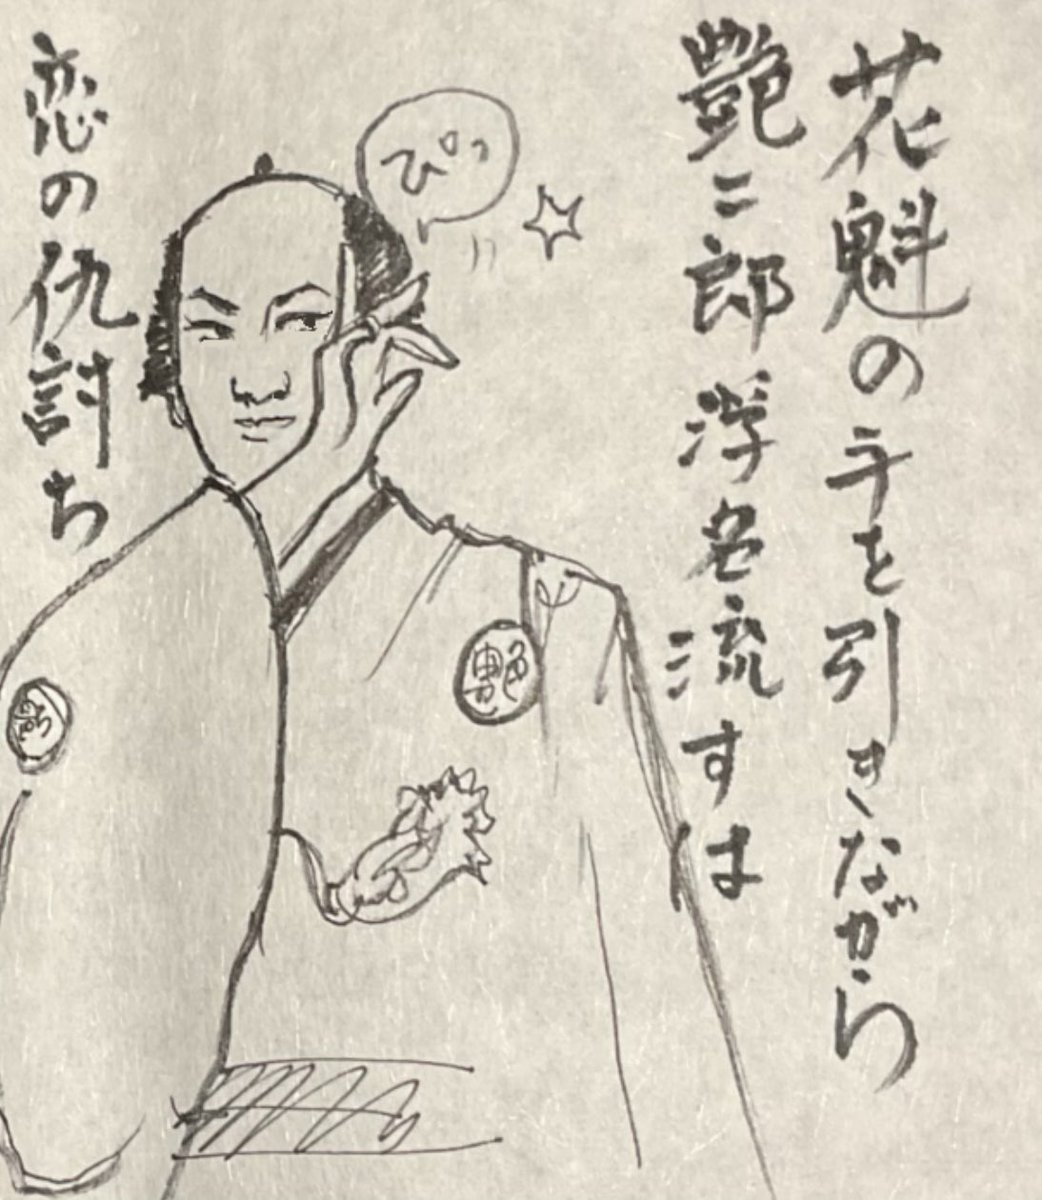 花魁の手を引きながら
艶二郎浮名流すは
恋の仇討ち
ぴっ
艶